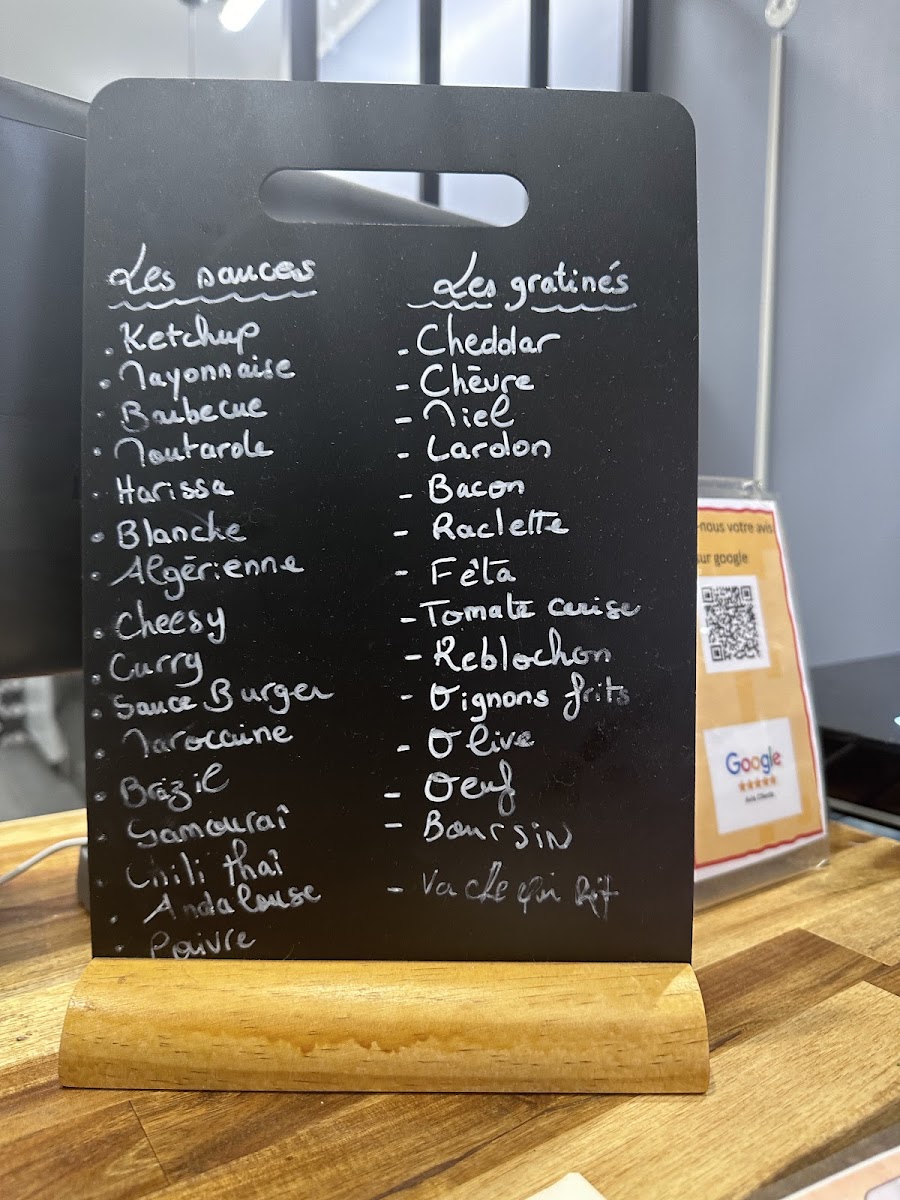 Les sauces
. Ketchup
. Mayonnaise
. Barbecue
. Moutarde
. Harissa
. Blanche
. Algérienne
. Cheesy
. Curry
. Sauce Burger
. Marocaine
. Brézil
. Samouraï
. Chili thaï
. Andalouse
. Poivre
Les gratinés
- Cheddar
- Chèvre
- Miel
- Lardon
- Bacon
- Raclette
- Fêta
- Tomate cerise
- Reblochon
- Oignons frits
- Olive
- Oeuf
- Boursin
- Vache qui Rit
-nous votre avis
sur google
Google
Avis Clients